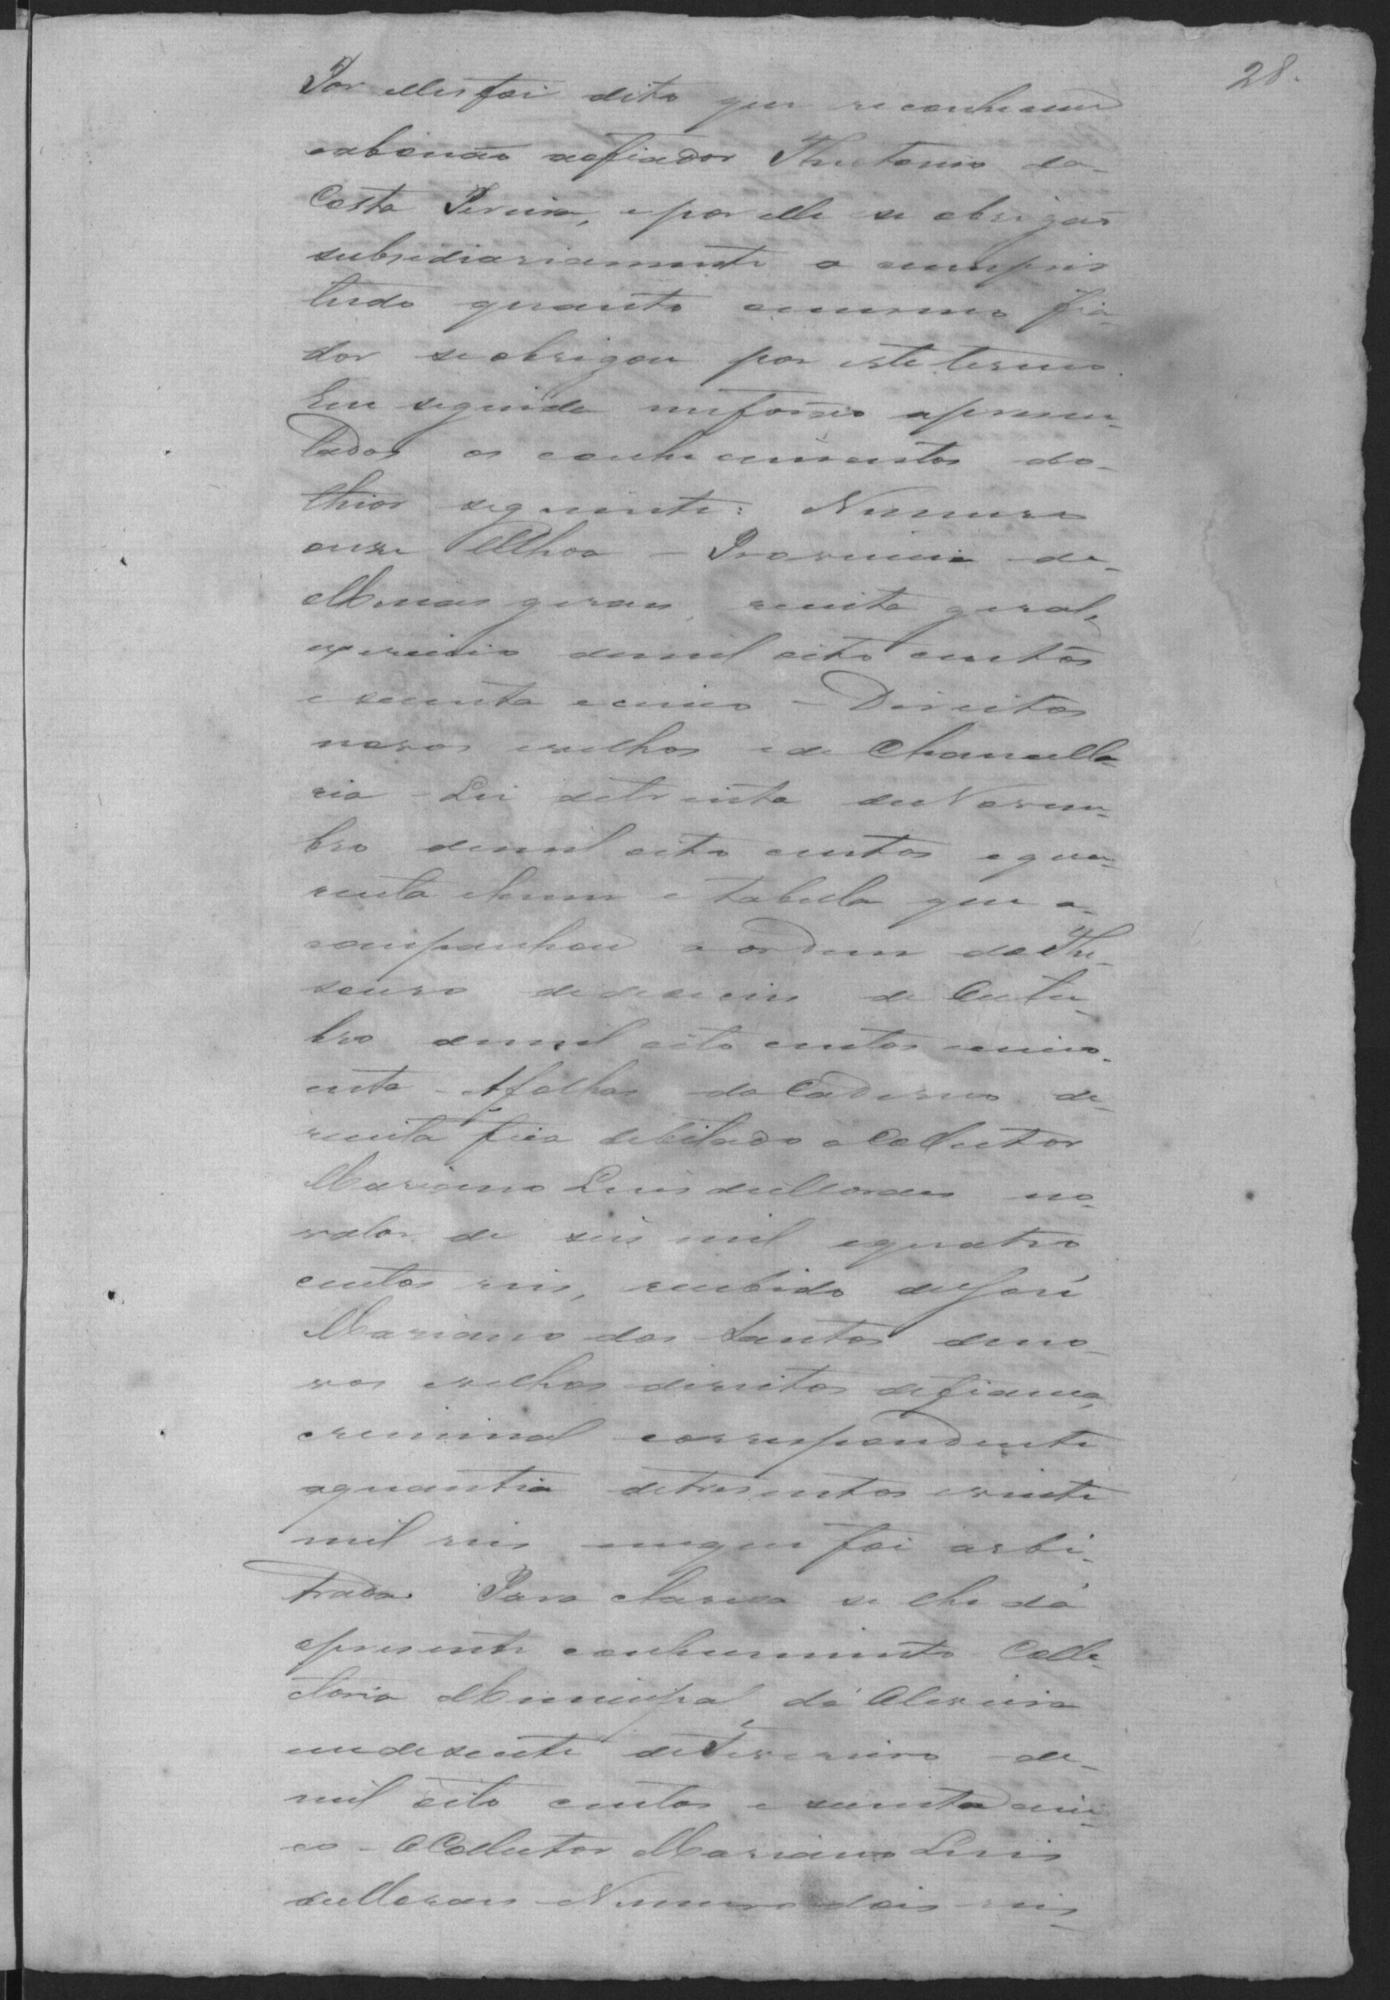 28.
Por elles foi dito que reconhecem
eabonão aofiador Theotonio da
Costa Pereira, epor elle se obrigão
subsidiariamente a cumprir
tudo quanto omesmo fia-
dor seobrigou por este termo.
Em seguida meforão apresen-
tados os conhecimentos do
thior seguinte: Numero
onze Provincia de
Minas geraes, receita geral,
exercicio demil oito centos
e secenta ecinco - Direitos
novos evelhos e de Chancella-
ria - Lei detrinta deNovem-
bro demil oito centos equa-
renta ehum e Tabella que a-
companhou a ordem doThe-
souro dedeseis de Outu-
bro demil oito centos ecinco-
enta - Afolhas doCaderno de
receita fica debitado oCollector
Mariano Luis deMoraes no
valor de seis mil equatro
centos reis, recebido deJosé
Mariano dos Santos deno-
vos evelhos direitos defiança
criminal correspondente
aquantia detresentos evinte
mil reis emque foi arbi-
trada. Para claresa se lhe dá
opresente conhecimento. Colle-
ctoria Municipal da
emdesente deFevereiro de
mil oito centos e secenta ecin-
co - OCollector Mariano Luis
deMoraes - Numero dois reis